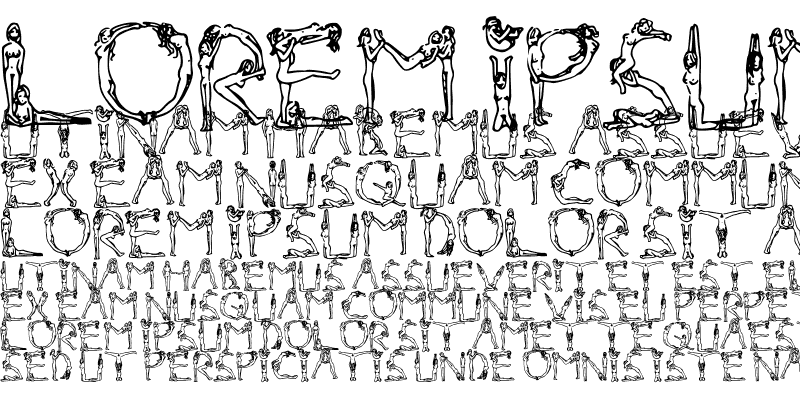 LOREM IPSUM
UTINAM AREMUS ASSUEV
EXEAM NUSQUAM COMMUN
LOREM IPSUM DOLOR SIT A
UTINAM AREMUS ASSUEVERIT ET EST EL
EXEAM NUSQUAM COMMUNE VISEU PERPE
LOREM IPSUM DOLOR SIT AMET TE QUAES
SED UT PERSPICATIS UNDE OMNIS ISTE NA